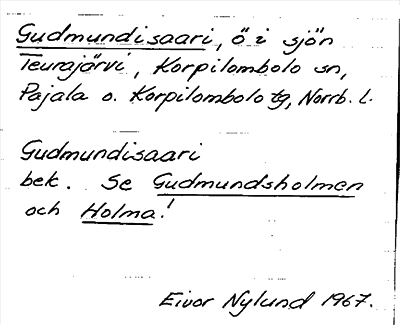 Gudmundisaari, ö i sjön
Teurajärvi, Korpilombolo sn,
Pajala o. Korpilombolo tg, Norrb. l.
Gudmundisaari
bek. Se Gudmundsholmen
och Holma!
Eivor Nylund 1967.